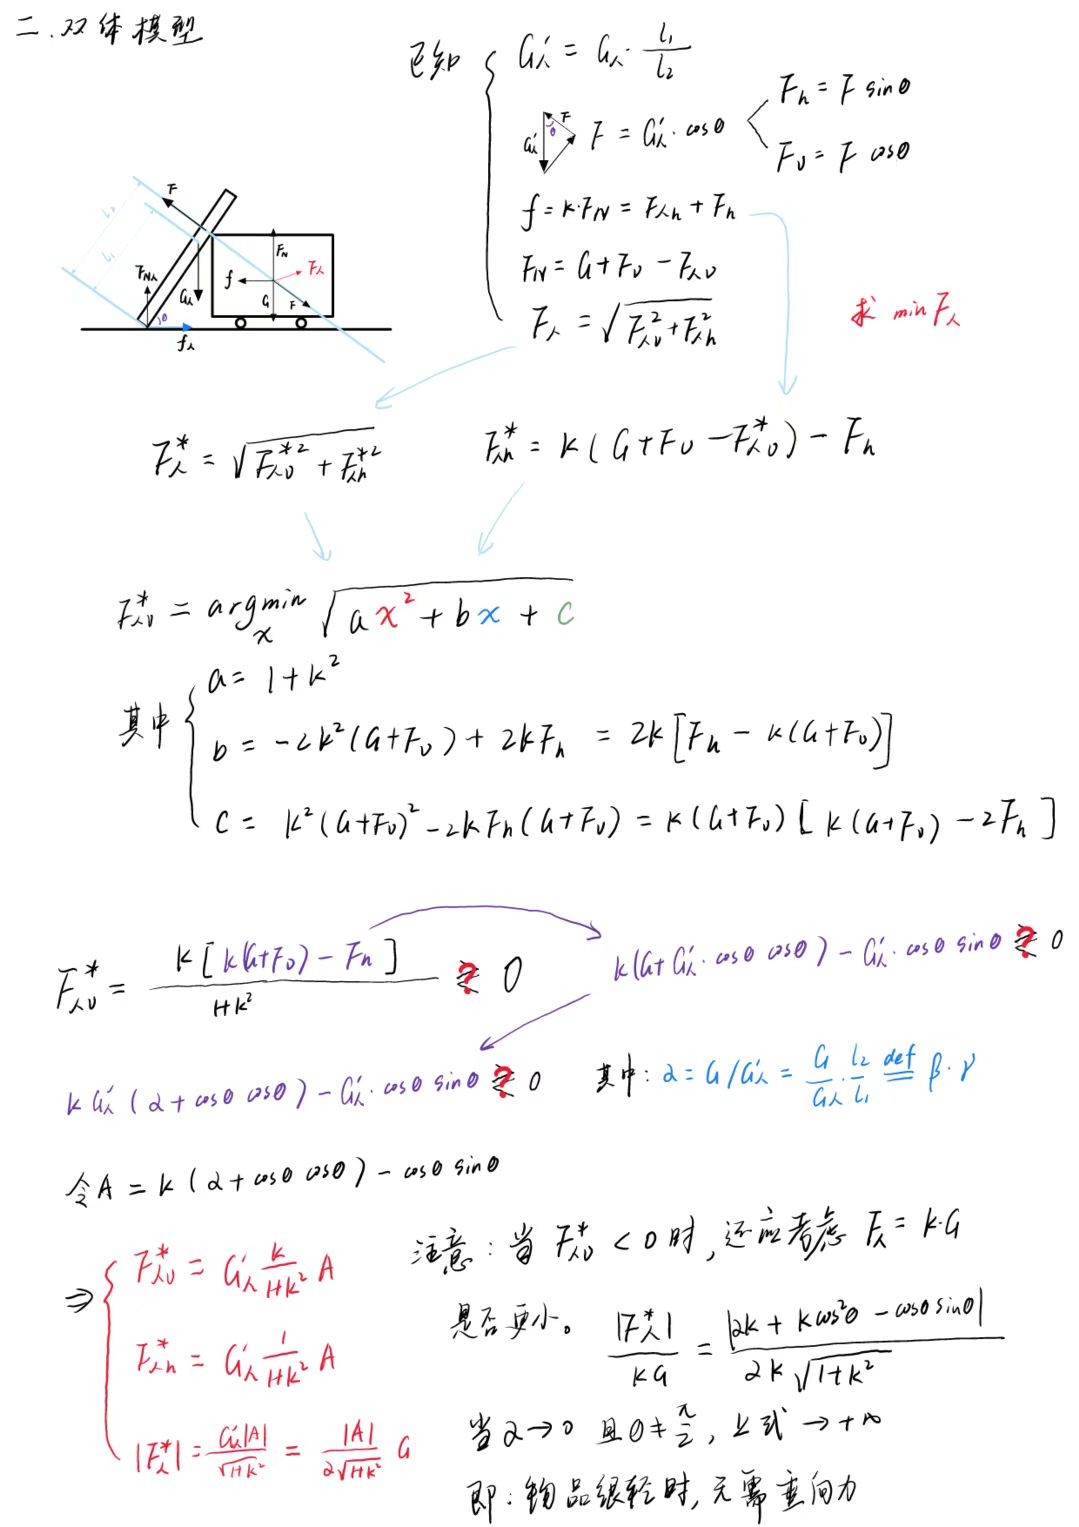 二.双体模型
已知
G人' = G人 · l₁/l₂
F = G人' · cosθ
F_h = F sinθ
F_v = F cosθ
f = k·F_N = F人h + F_h
F_N = G + F_v − F人v
F人 = √(F人v² + F人h²)
求 min F人
l₂
l₁
F
F_N人
G人
θ
f人
f
F_N
F人
G
F
G人'
F
θ
F人* = √(F人v*² + F人h*²)
F人h* = k(G + F_v − F人v*) − F_h
F人v* = argmin_x √(ax² + bx + c)
其中
a = 1+k²
b = −2k²(G+F_v) + 2kF_h = 2k[F_h − k(G+F_v)]
c = k²(G+F_v)² − 2kF_h(G+F_v) = k(G+F_v)[k(G+F_v) − 2F_h]
F人v* = k[k(G+F_v) − F_h] / (1+k²) ≷ ? 0
k(G + G人'·cosθ cosθ) − G人'·cosθ sinθ ≷ ? 0
kG人'(α + cosθ cosθ) − G人'·cosθ sinθ ≷ ? 0
其中: α = G/G人' = G/G人 · l₂/l₁ def= β·γ
令A = k(α + cosθ cosθ) − cosθ sinθ
⇒ F人v* = G人' k/(1+k²) A
F人h* = G人' 1/(1+k²) A
|F人*| = G人'|A|/√(1+k²) = |A|/(α√(1+k²)) G
注意: 当 F人v* < 0 时, 还应考虑 F人 = k·G
是否更小。 |F人*|/kG = |αk + k cos²θ − cosθ sinθ| / (αk√(1+k²))
当 α→0 且 θ≠π/2, 上式 → +∞
即: 物品很轻时, 无需垂向力